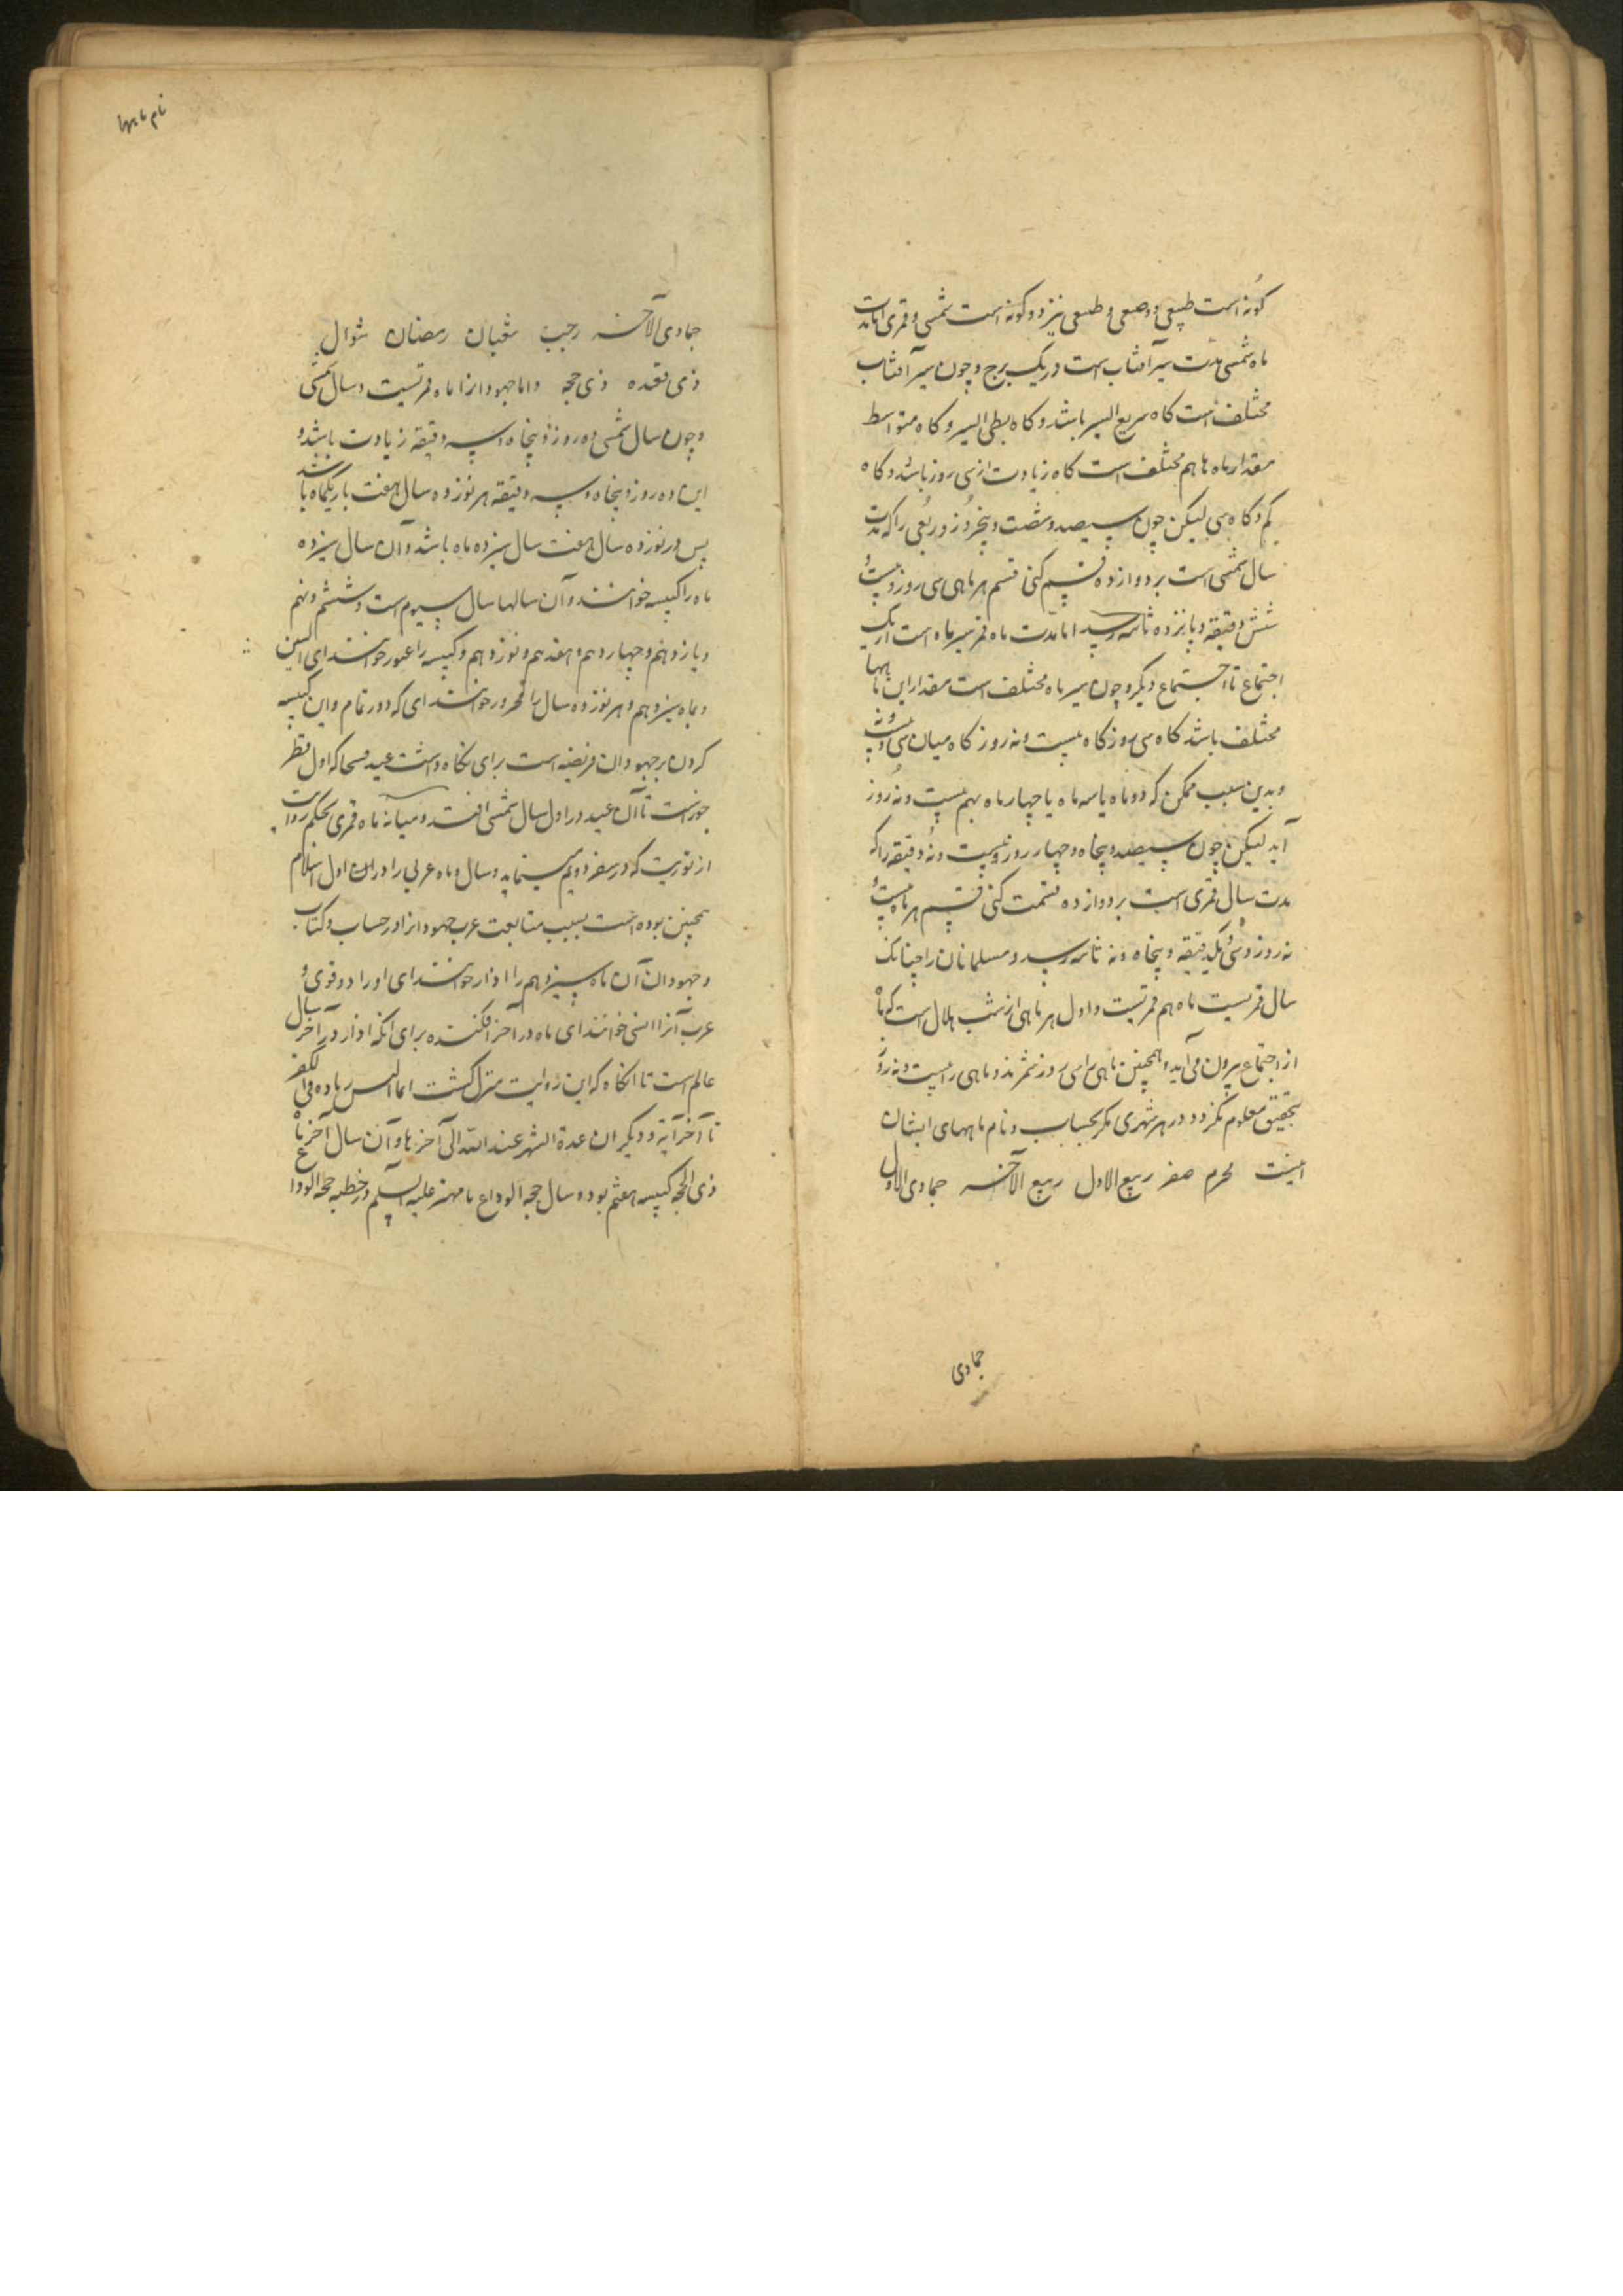 کونه است طبیعی و وضعی و طبیعی نیز دو کونه است شمسی و قمری اما مدت
ماه شمسی مدت سیر آفتاب است در یک برج و چون سیر آفتاب
مختلف است کاه سریع السیر باشد و کاه بطی السیر و کاه متواسط
مقدار ماه ها هم مختلف است کاه زیادت از سی روز باشد و کاه
کم و کاه سی لیکن چون سیصد و شصت و پنجروز و ربعی را که مدت
سال شمسی است بر دوازده قسم کنی قسم هر ماهی سی روز و بیست و
شش دقیقه و پانزده ثانیه رسد اما مدت ماه قمر سیر ماه است از یک
اجتماع تا اجتماع دیکر و چون سیر ماه مختلف است مقدار این ماهها
مختلف باشد کاه سی روز کاه بیست و نه روز کاه میان سی و بیست و نه
و بدین سبب ممکن که دو ماه یا سه ماه یا چهار ماه بهم بیست و نه روز
آید لیکن چون سیصد و پنجاه و چهار روز و بیست و نه دقیقه را که
مدت سال قمری است بر دوازده قسمت کنی قسم هر ماه بیست و
نه روز و سی و یکدقیقه و پنجاه و نه ثانیه رسد و مسلمانان را چنانک
سال قمریست ماه هم قمریست و اول هر ماهی از شب هلال است که ماه
از اجتماع بیرون می آید و همچنین ماهی را سی روز شمرند و ماهی را بیست و نه روز
بتحقیق معلوم نکردد در هر شهری مکر بحساب و نام ماههای ایشان
اینست محرم صفر ربیع الاول ربیع الآخر جمادی الاول
جمادی
نام ماهها
جمادی الآخر رجب شعبان رمضان شوال
ذی قعده ذی حجه و اما جهودانرا ماه قمریست و سال شمسی
و چون سال شمسی ده روز و پنجاه و سه دقیقه زیادت باشد و
این ده روز و پنجاه و سه دقیقه هر نوزده سال هفت بار یکماه باشد
پس در نوزده سال هفت سال سیزده ماه باشد و آن سال سیزده
ماه را کبیسه خوانند و آن سالها سال سیوم است و ششم و نهم
و یازدهم و چهاردهم و هفدهم و نوزدهم و کبیسه را عبور خوانند ای السین
و بماه سیزدهم و هر نوزده سال را محزور خوانند ای که دور تمام و این کبیسه
کردن بر جهودان فریضه است برای نکاه داشت عید فسحا که اول فطر
جوزست تا آن عید در اول سال شمسی افتد و میانه ماه قمری بحکم روایت
از توریت که در سفر دویم سیتماید و سال و ماه عربی را در ان اول اسلام
همچنین بوده است بسبب متابعت عرب جهودانرا در حساب و کتاب
و جهودان آن ماه سیزدهم را اذار خوانند ای او را دو قوی و
عرب آنرا انسی خوانند ای ماه در آخر افکنده برای انکه اذار در آخر سال
عالم است تا انکاه که این رهایت منزل کشت انما النسی زیاده فی الکفر
تا آخر آیة و دیکر ان عدة الشهر عند الله الی آخرها و آن سال آخر ماه
ذی الحجه کبیسه هفتم بود و سال حجه الوداع با مهتر علیه السلم در خطبه حجه الوداع